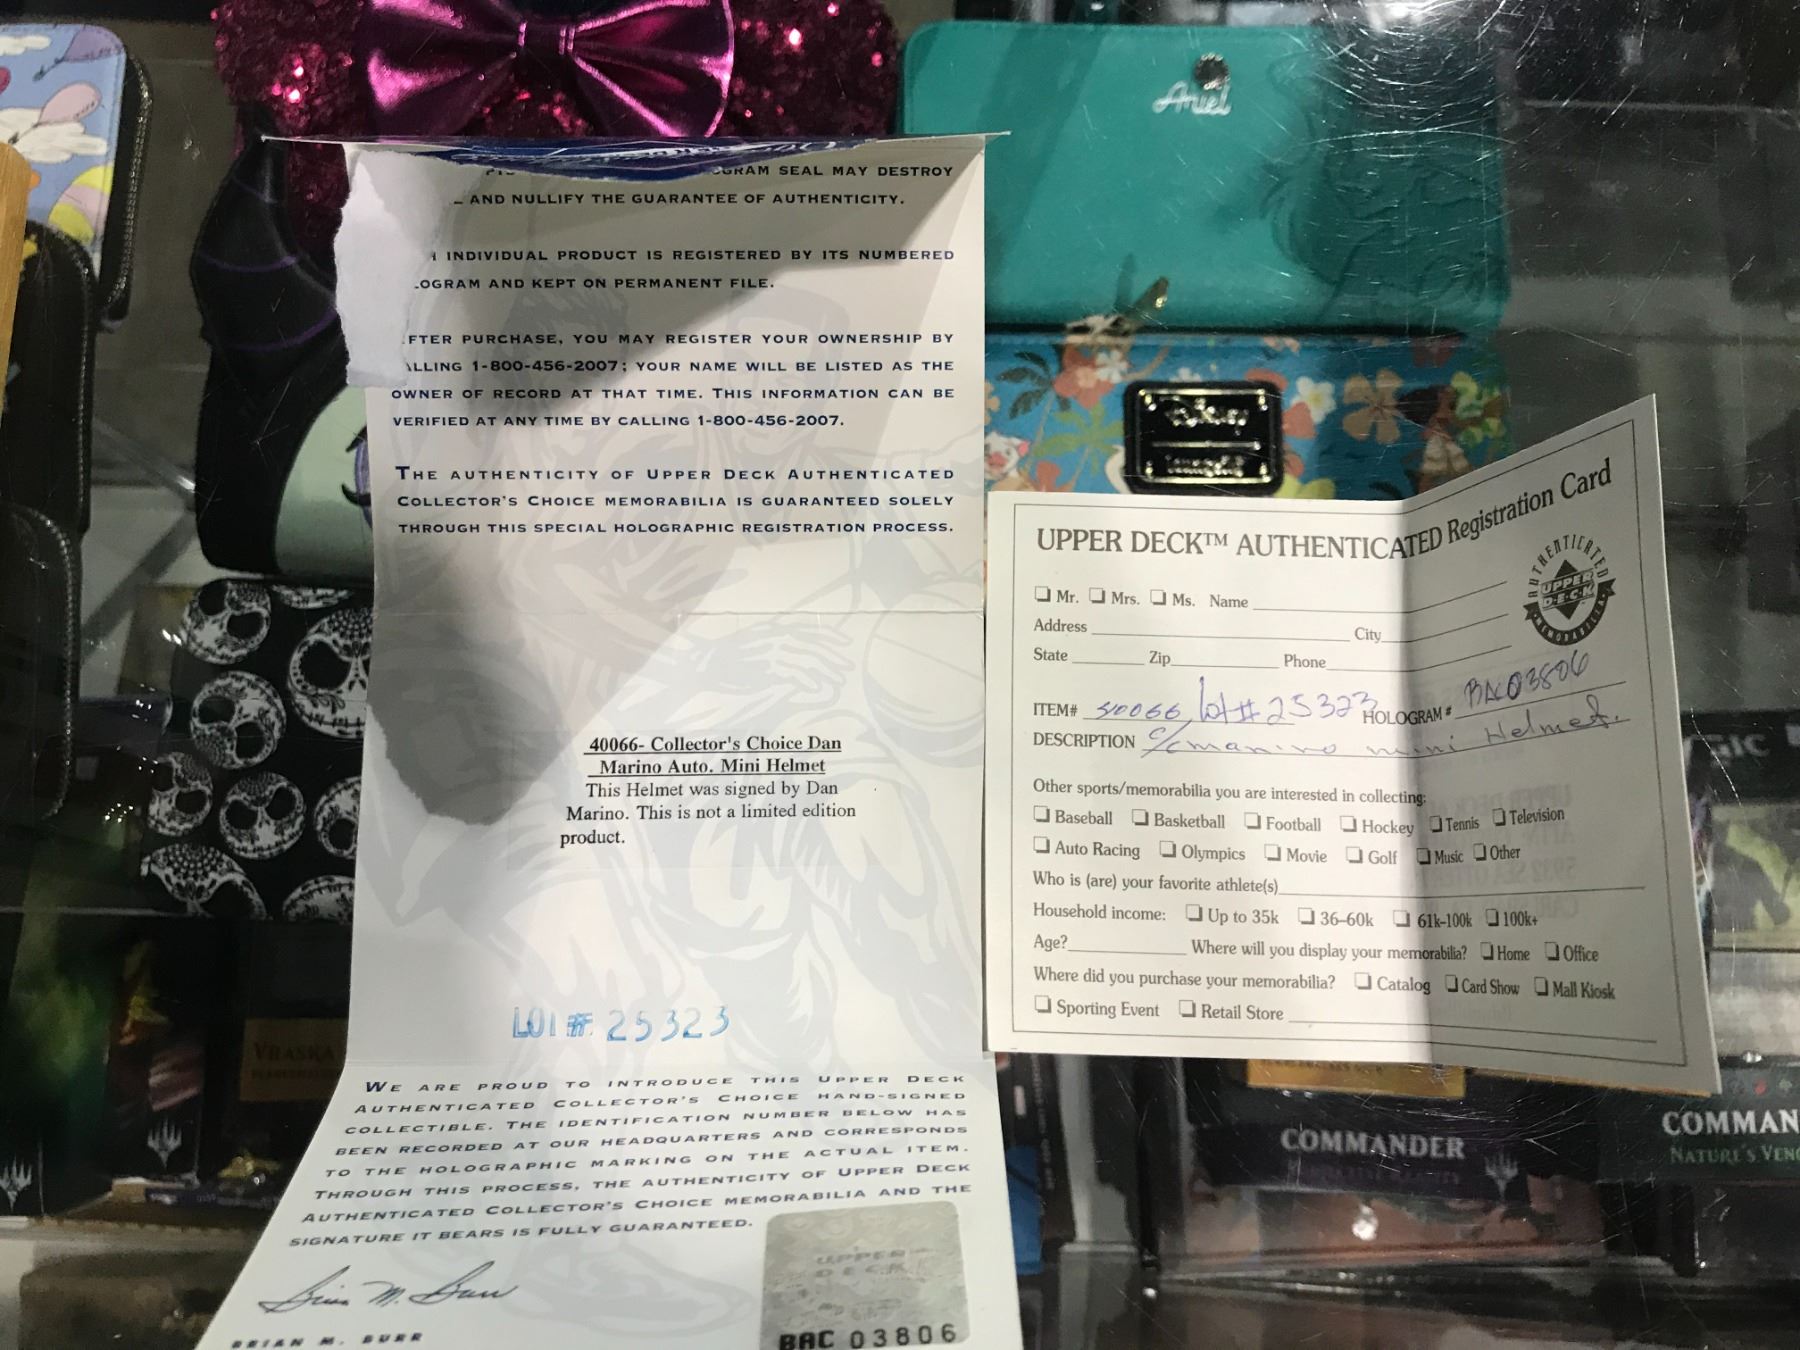 Ariel
GRAM SEAL MAY DESTROY
AND NULLIFY THE GUARANTEE OF AUTHENTICITY.
INDIVIDUAL PRODUCT IS REGISTERED BY ITS NUMBERED
OGRAM AND KEPT ON PERMANENT FILE.
FTER PURCHASE, YOU MAY REGISTER YOUR OWNERSHIP BY
ALLING 1-800-456-2007; YOUR NAME WILL BE LISTED AS THE
OWNER OF RECORD AT THAT TIME. THIS INFORMATION CAN BE
VERIFIED AT ANY TIME BY CALLING 1-800-456-2007.
THE AUTHENTICITY OF UPPER DECK AUTHENTICATED
COLLECTOR'S CHOICE MEMORABILIA IS GUARANTEED SOLELY
THROUGH THIS SPECIAL HOLOGRAPHIC REGISTRATION PROCESS.
40066- Collector's Choice Dan
Marino Auto. Mini Helmet
This Helmet was signed by Dan
Marino. This is not a limited edition
product.
LOT # 25323
WE ARE PROUD TO INTRODUCE THIS UPPER DECK
AUTHENTICATED COLLECTOR'S CHOICE HAND-SIGNED
COLLECTIBLE. THE IDENTIFICATION NUMBER BELOW HAS
BEEN RECORDED AT OUR HEADQUARTERS AND CORRESPONDS
TO THE HOLOGRAPHIC MARKING ON THE ACTUAL ITEM.
THROUGH THIS PROCESS, THE AUTHENTICITY OF UPPER DECK
AUTHENTICATED COLLECTOR'S CHOICE MEMORABILIA AND THE
SIGNATURE IT BEARS IS FULLY GUARANTEED.
Brian M. Burr
BRIAN M. BURR
UPPER
DECK
BAC 03806
Disney
Loungefly
UPPER DECK™ AUTHENTICATED Registration Card
AUTHENTICATED
UPPER
DECK
MEMORABILIA
Mr. Mrs. Ms. Name
Address City
State Zip Phone
ITEM# 40066, Lot # 25323 HOLOGRAM # BAC03806
DESCRIPTION mini Helmet.
Other sports/memorabilia you are interested in collecting:
Baseball Basketball Football Hockey Tennis Television
Auto Racing Olympics Movie Golf Music Other
Who is (are) your favorite athlete(s)
Household income: Up to 35k 36–60k 61k–100k 100k+
Age? Where will you display your memorabilia? Home Office
Where did you purchase your memorabilia? Catalog Card Show Mall Kiosk
Sporting Event Retail Store
VRASKA
COMMANDER
COMMAN
NATURE'S VEN